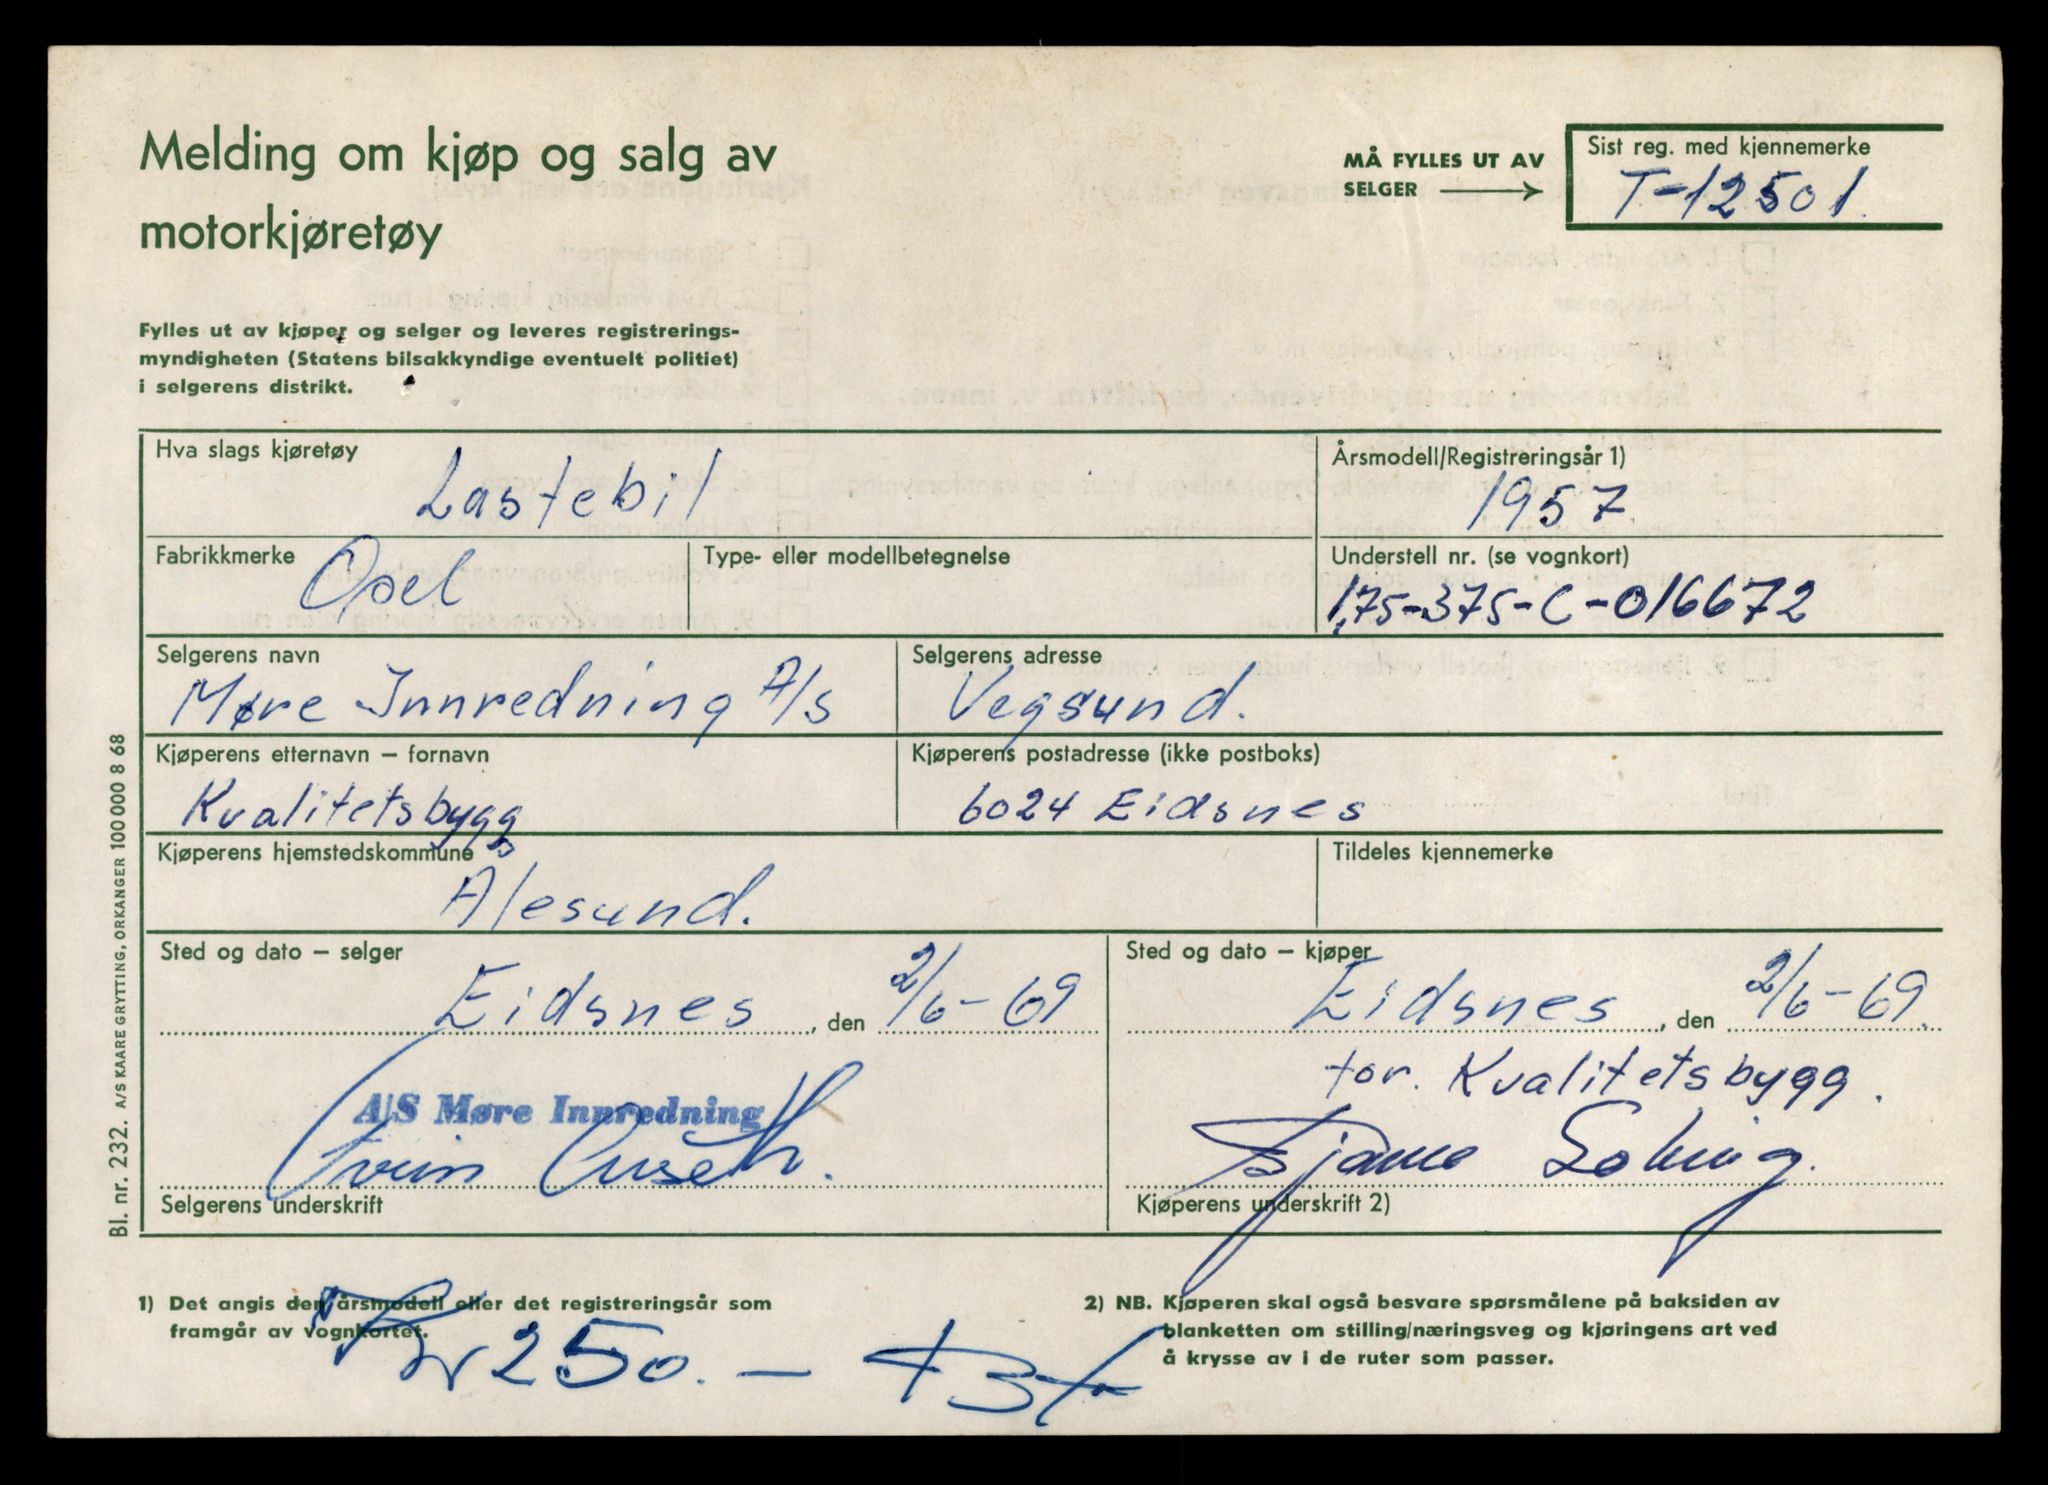 Melding om kjøp og salg av
motorkjøretøy
MÅ FYLLES UT AV
SELGER
Sist reg. med kjennemerke
T-12501.
Fylles ut av kjøper og selger og leveres registrerings-
myndigheten (Statens bilsakkyndige eventuelt politiet)
i selgerens distrikt.
Hva slags kjøretøy
Lastebil
Årsmodell/Registreringsår 1)
1957
Fabrikkmerke
Opel
Type- eller modellbetegnelse
Understell nr. (se vognkort)
1,75-375-C-016672
Selgerens navn
Møre Innredning A/S
Selgerens adresse
Vegsund.
Kjøperens etternavn – fornavn
Kvalitetsbygg
Kjøperens postadresse (ikke postboks)
6024 Eidsnes
Kjøperens hjemstedskommune
Ålesund.
Tildeles kjennemerke
Sted og dato – selger
Eidsnes, den 2/6-69
A/S Møre Innredning
Selgerens underskrift
Sted og dato – kjøper
Eidsnes, den 2/6-69.
for. Kvalitetsbygg.
Bjarne
Kjøperens underskrift 2)
1) Det angis den årsmodell eller det registreringsår som
framgår av vognkortet.
Kr 250.-
2) NB. Kjøperen skal også besvare spørsmålene på baksiden av
blanketten om stilling/næringsveg og kjøringens art ved
å krysse av i de ruter som passer.
Bl. nr. 232. A/S KAARE GRYTTING, ORKANGER 100 000 8 68